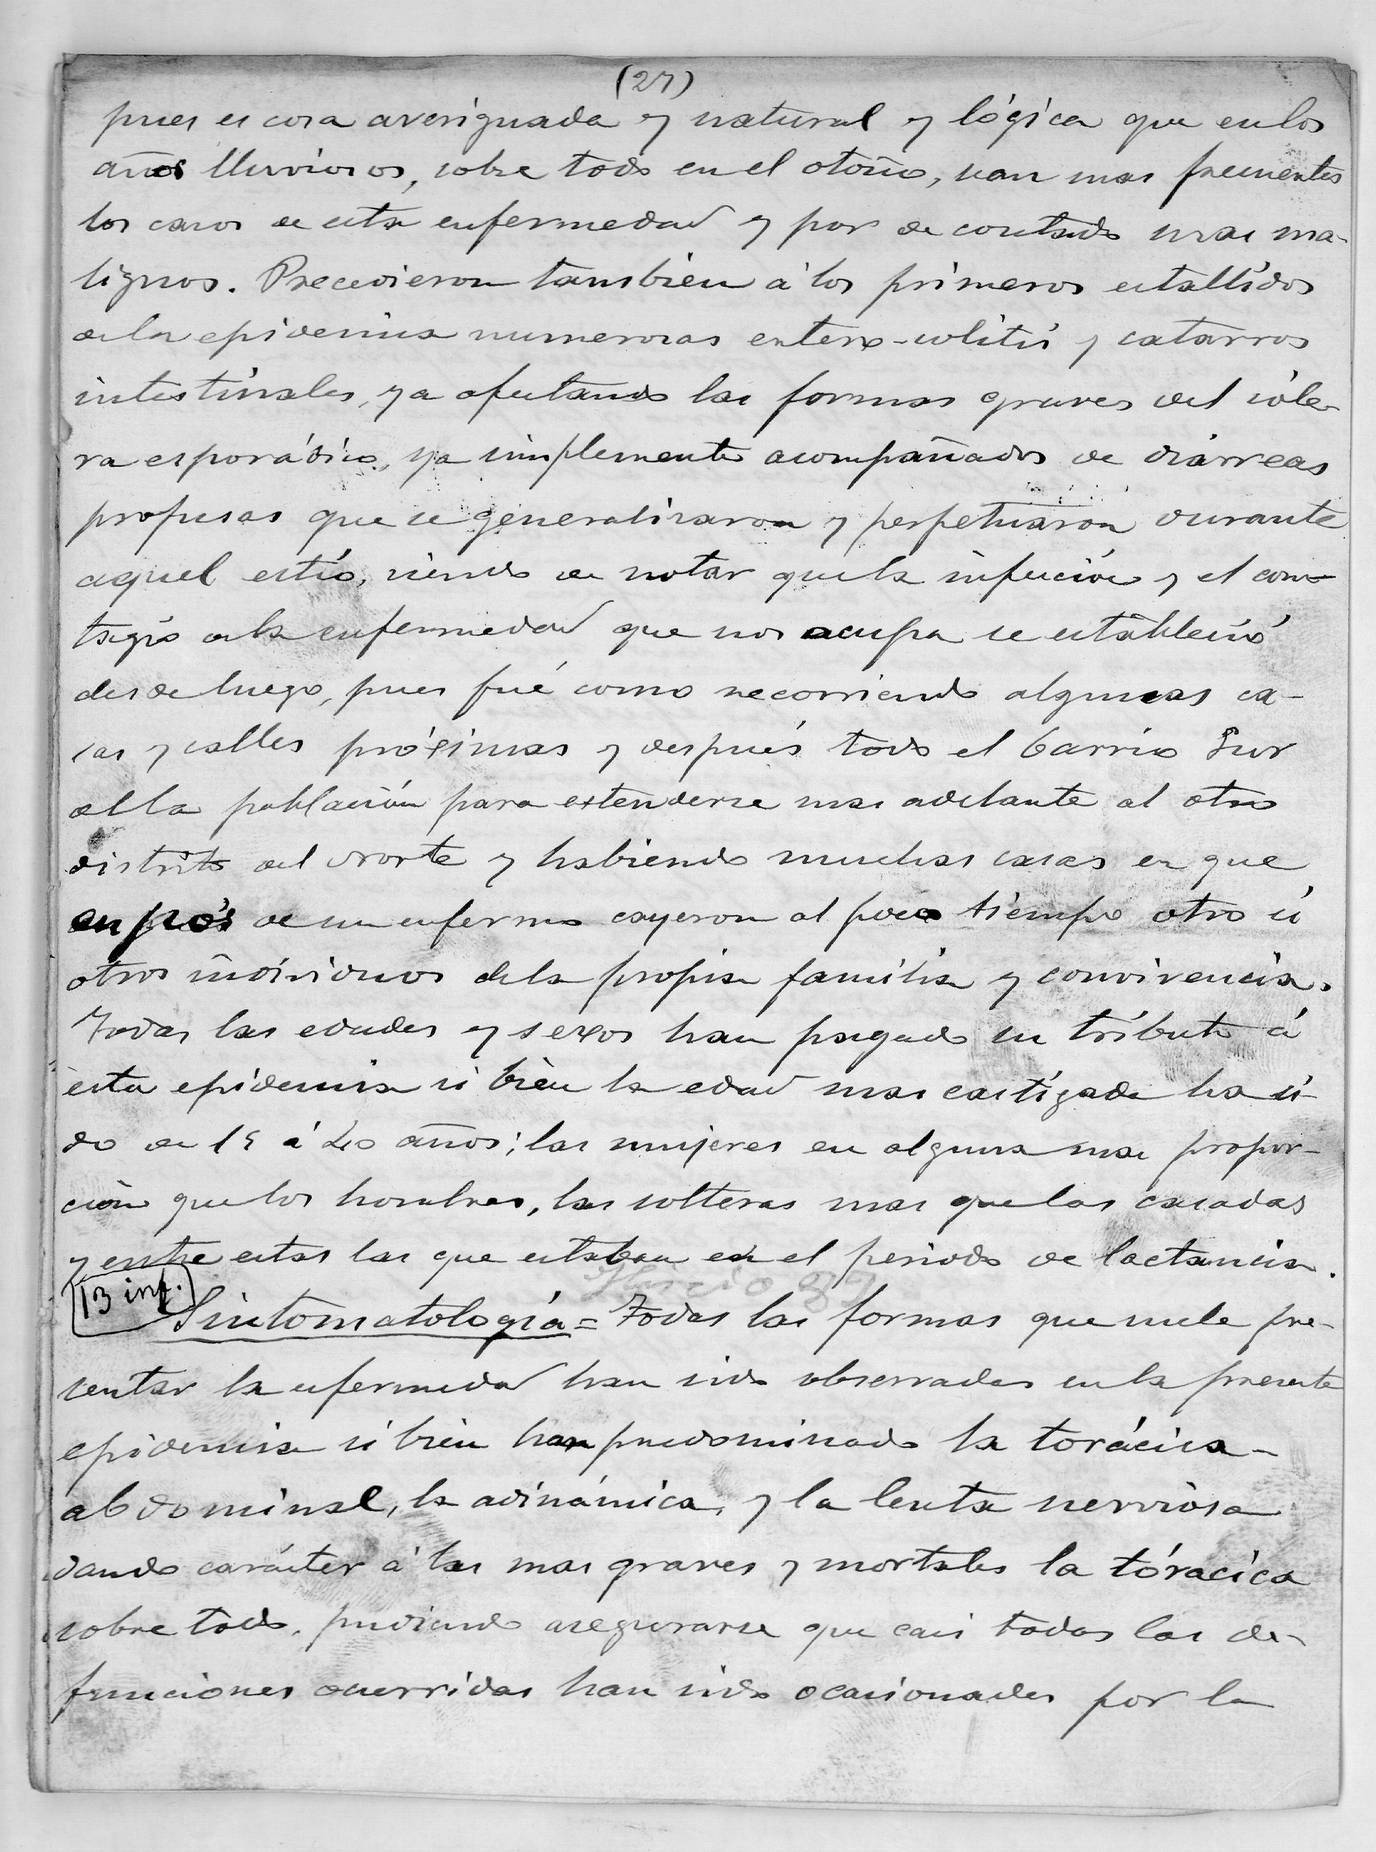 (27)
pues es cosa averiguada y natural y lógica que en los
años lluviosos, sobre todo en el otoño, sean mas frecuentes
los casos de esta enfermedad y por de contado mas ma-
lignos. Precedieron también á los primeros estallidos
de la epidemia numerosas entero-colitis y catarros
intestinales, ya afectando las formas graves del cóle-
ra esporádico, ya simplemente acompañados de diárreas
profusas que se generalizaron y perpetuaron durante
aquel estío, siendo de notar que la infección y el con-
tagio de la enfermedad que nos ocupa se estableció
desde luego, pues fué como recorriendo algunas ca-
sas y calles próximas y después todo el barrio Sur
de la población para extenderse mas adelante al otro
distrito del Norte y habiendo muchas casas en que
en pos de un enfermo cayeron al poco tiempo otro ú
otros individuos de la propia familia y convivencia.
Todas las edades y sexos han pagado su tributo á
esta epidemia si bien la edad mas castigada ha si-
do de 15 á 40 años; las mujeres en alguna mas propor-
ción que los hombres, las solteras mas que las casadas
y entre estas las que estaban en el periodo de lactancia.
13 inf.
Sintomatología = Todas las formas que suele pre-
sentar la enfermedad han sido observadas en la presente
epidemia si bien han predominado la torácica-
abdominal, la adinámica, y la lenta nerviosa
dando carácter á las mas graves y mortales la tóracica
sobre todo, pudiendo asegurarse que casi todas las de-
funciones ocurridas han sido ocasionadas por la